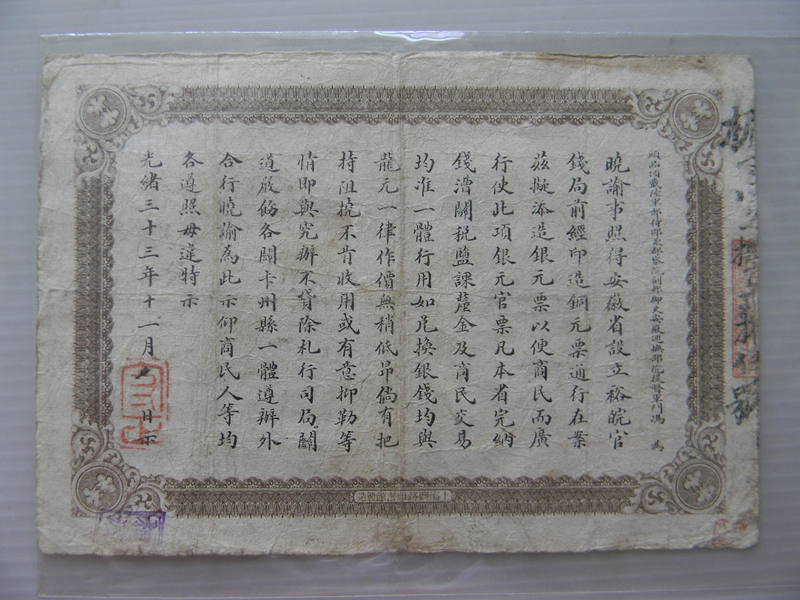 頭品頂戴陸軍部侍郎兼都察院副都御史安徽巡撫部院提督軍門馮 為
曉諭事照得安徽省設立裕皖官
錢局前經印造銅元票通行在案
茲擬添造銀元票以便商民而廣
行使此項銀元官票凡本省完納
錢漕關稅鹽課釐金及商民交易
均准一體行用如兌換銀錢均與
龍元一律作價無稍低昂倘有把
持阻撓不肯收用或有意抑勒等
情即與究辦不貸除札行司局關
道嚴飭各關卡州縣一體遵辦外
合行曉諭為此示仰商民人等均
各遵照毋違特示
光緒三十三年十一月 日示